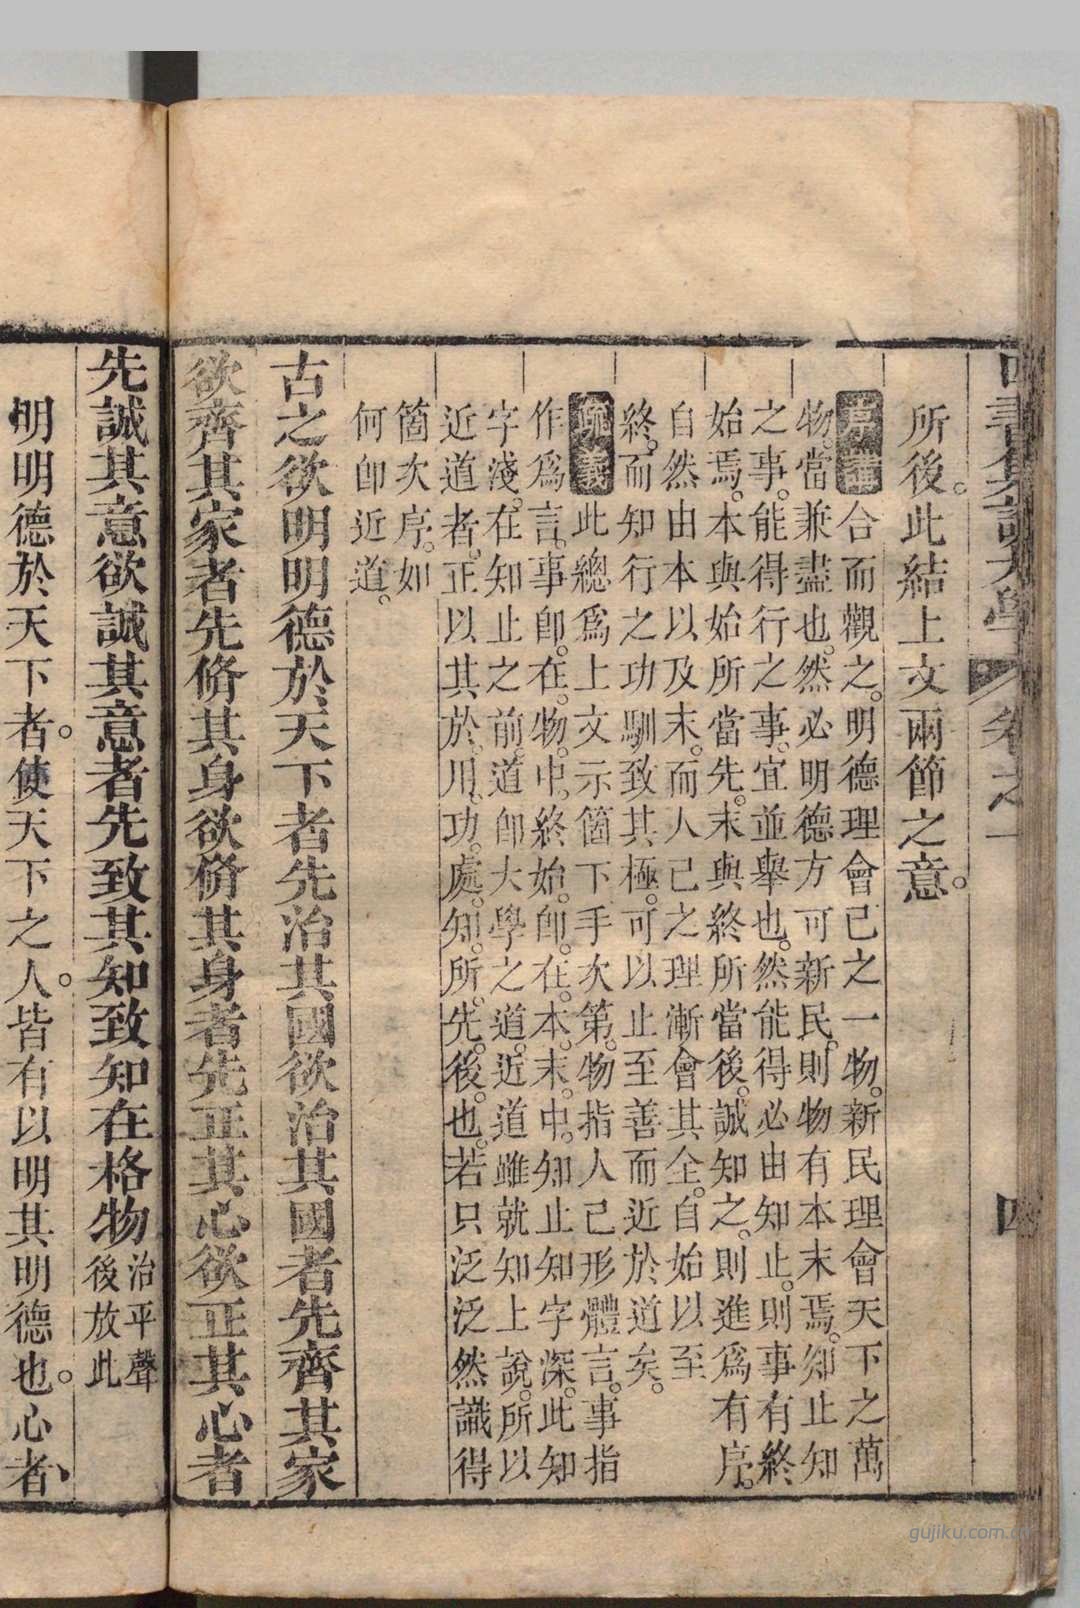 所後。此結上文兩節之意。
合而觀之。明德理會己之一物。新民理會天下之萬
物。當兼盡也。然必明德方可新民。則物有本末焉。知止知
之事。能得行之事。宜並舉也。然能得必由知止。則事有終
始焉。本與始所當先。末與終所當後。誠知之。則進爲有序。
自然由本以及末。而人己之理漸會其全。自始以至
終。而知行之功馴致其極。可以止至善而近於道矣。
此總爲上文示箇下手次第。物指人己形體言。事指
作爲言。事卽在物中。終始卽在本末中。知止知字深。此知
字淺。在知止之前。道卽大學之道。近道雖就知上說。所以
近道者。正以其於用功處。知所先後也。若只泛泛然識得
箇次序。如
何卽近道。
古之欲明明德於天下者先治其國欲治其國者先齊其家
欲齊其家者先脩其身欲脩其身者先正其心欲正其心者
先誠其意欲誠其意者先致其知致知在格物治平聲
後放此
明明德於天下者。使天下之人。皆有以明其明德也。心者
四
gujiku.com